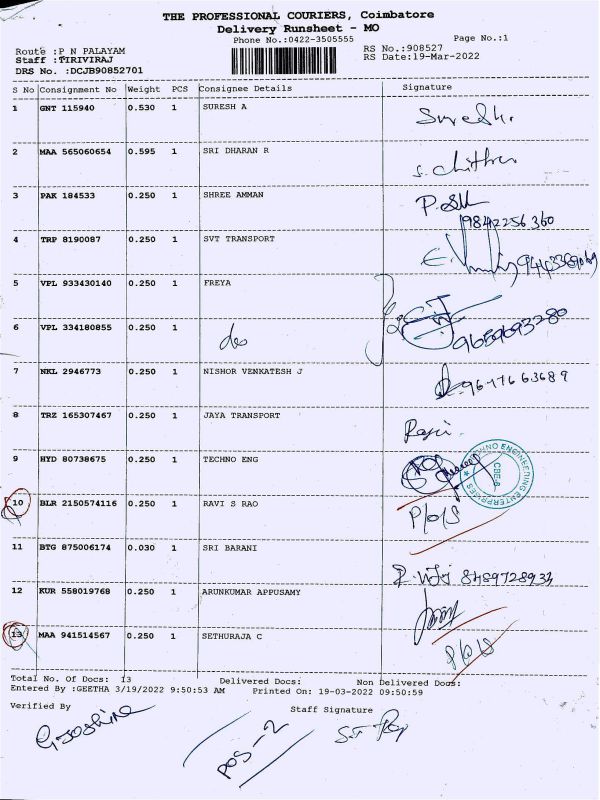 THE PROFESSIONAL COURIERS, Coimbatore
Delivery Runsheet - MO
Phone No.:0422-3505555
Page No.:1
Route :P N PALAYAM
RS No.:908527
Staff :TIRIVIRAJ
RS Date:19-Mar-2022
DRS No. :DCJB90852701
S No Consignment No Weight PCS Consignee Details Signature
1 GNT 115940 0.530 1 SURESH A Suresh.
2 MAA 565060654 0.595 1 SRI DHARAN R S. Chithra
3 PAK 184533 0.250 1 SHREE AMMAN
9842256360
4 TRP 8190087 0.250 1 SVT TRANSPORT
5 VPL 933430140 0.250 1 FREYA
6 VPL 334180855 0.250 1 do 9659693280
7 NKL 2946773 0.250 1 NISHOR VENKATESH J 9617663689
8 TRZ 165307467 0.250 1 JAYA TRANSPORT Raji.
9 HYD 80738675 0.250 1 TECHNO ENG
TECHNO ENGINEERING ENTERPRISES
10 BLR 2150574116 0.250 1 RAVI S RAO P/O/S
11 BTG 875006174 0.030 1 SRI BARANI 8489728933
12 KUR 558019768 0.250 1 ARUNKUMAR APPUSAMY
13 MAA 941514567 0.250 1 SETHURAJA C P/O/S
Total No. Of Docs: 13 Delivered Docs: Non Delivered Docs:
Entered By :GEETHA 3/19/2022 9:50:53 AM Printed On: 19-03-2022 09:50:59
Verified By
Staff Signature
G. Joshine
POS-2